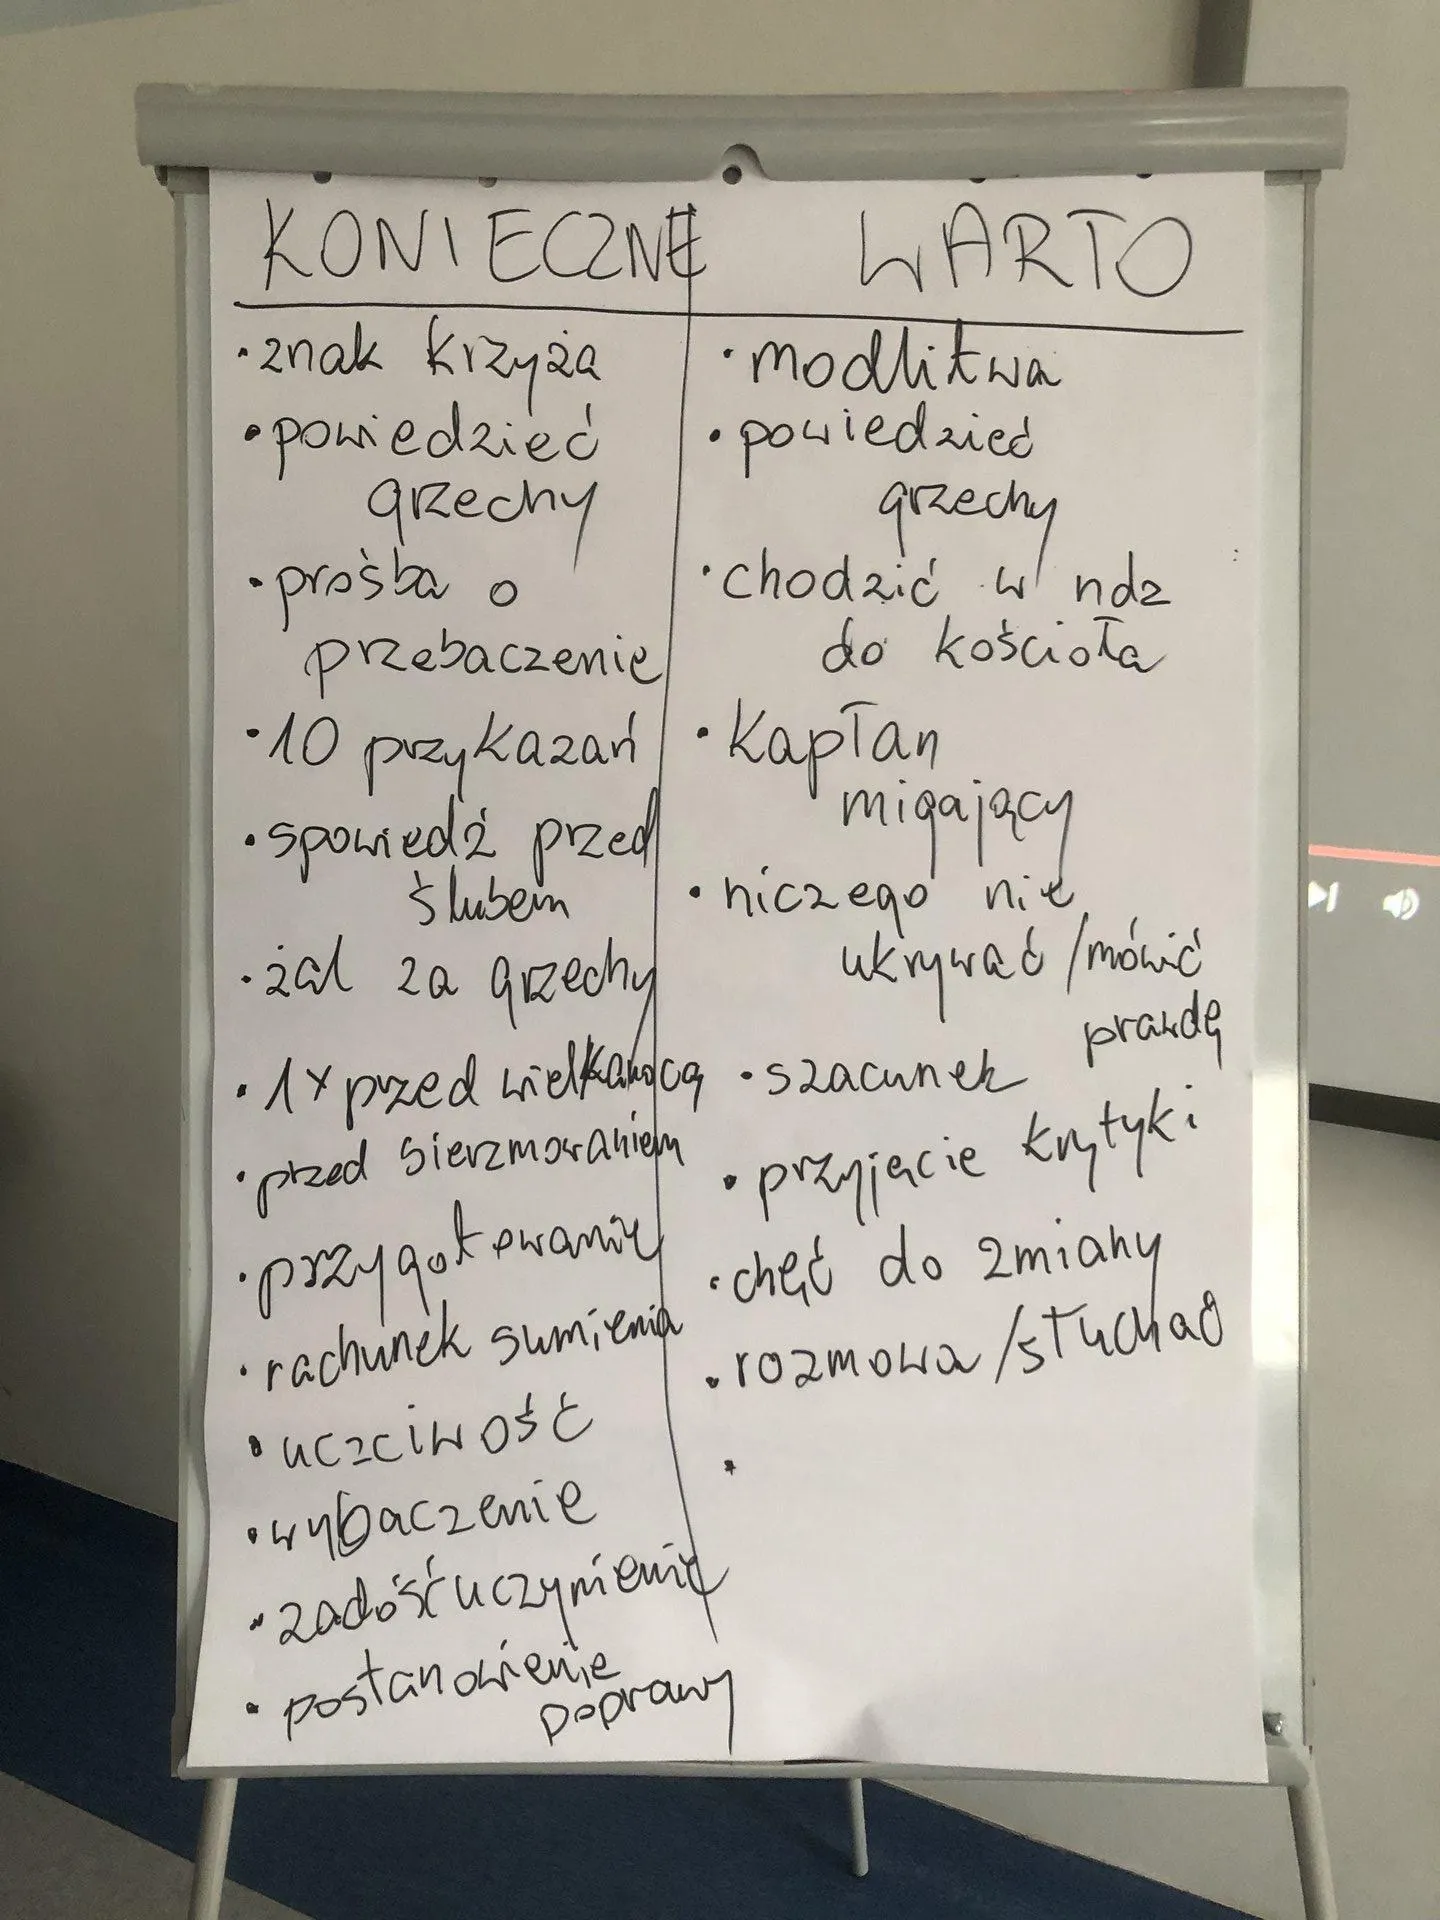 KONIECZNE
• znak krzyża
• powiedzieć
grzechy
• prośba o
przebaczenie
• 10 przykazań
• spowiedź przed
ślubem
• żal za grzechy
• 1x przed wielkanocą
• przed bierzmowaniem
• przygotowanie
• rachunek sumienia
• uczciwość
• wybaczenie
• zadośćuczynienie
• postanowienie
poprawy
WARTO
• modlitwa
• powiedzieć
grzechy
• chodzić w ndz
do kościoła
• Kapłan
migający
• niczego nie
ukrywać / mówić
prawdę
• szacunek
• przyjęcie krytyki
• chęć do zmiany
• rozmowa / słuchać
•